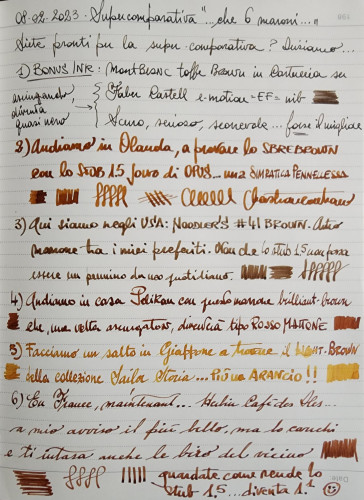 08.02.2023. Supercomparativa "...che 6 maroni..."
Siete pronti per la super comparativa? Iniziamo...
1) BONUS INK: MONTBLANC toffee Brown in cartuccia su
asciugando diventa quasi nero
Faber Castell e-motion =EF= nib
Scuro, serioso, ... forse il migliore
2) Andiamo in Olanda, a provare lo SBREBROWN
con lo STUB 1.5 Jowo di OPUS... una SIMPATICA PENNELLESSA
3) Qui siamo negli USA: NOODLER'S #41 BROWN. Altro
marrone tra i miei preferiti. Non che lo stub 1.5 non possa
essere un pennino da uso quotidiano.
4) Andiamo in casa Pelikan con questo marrone brilliant-brown
che, una volta asciugatosi, diventa tipo ROSSO MATTONE
5) Facciamo un salto in Giappone a trovare il LIGHT-BROWN
della collezione Sailor Storia... PIÙ UN ARANCIO!!
6) En France, maintenant... Herbin Café des Iles...
a mio avviso il più bello, ma lo carichi
e ti intasa anche le biro del vicino
guardate come rende lo
stub 1,5... diventa 1.1